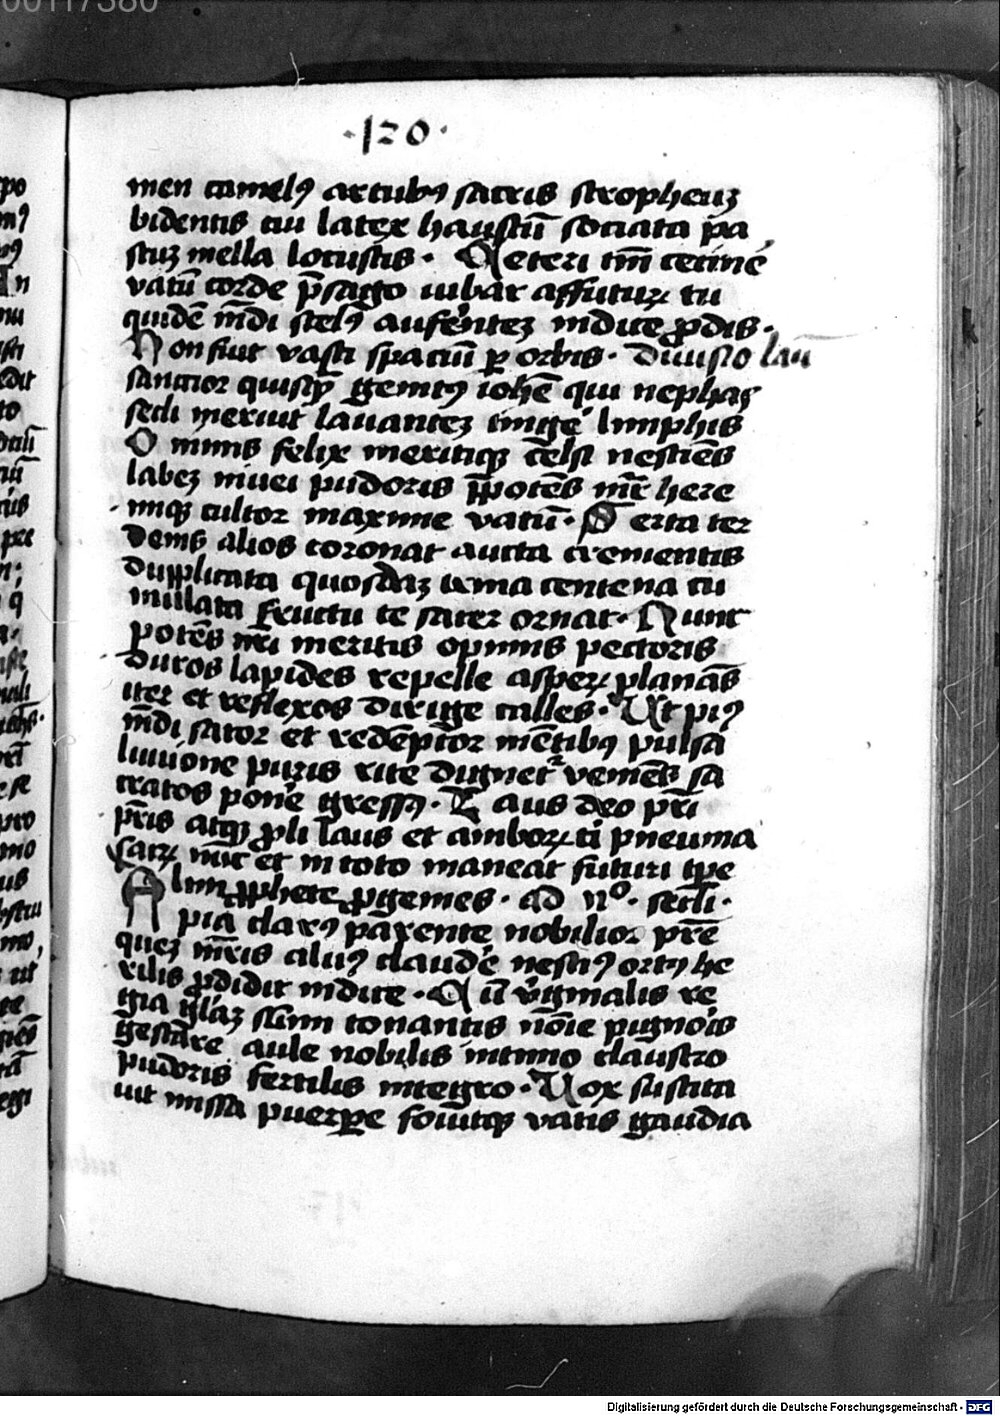 00117380
·120·
men camelꝰ artubꝰ sacris stropheuʒ
bidentis cui latex haustū sociata pa
stuʒ mella locustis · Ceteri tm̄ cecine͛
vatū corde p̄sago iubar affuturꝝ tu
quidē mūdi scelꝰ auferenteʒ indice ꝓdis ·
Non fuit vasti spaciū ꝑ orbis · Diuisio lau
sanctior quisꝙ genitꝰ iohē qui nephas
secli meruit lauanteʒ tinge͛ limphis
O nimis felix meritiqꝫ cēlsi nesciēs
labeʒ niuei pudoris p̄potēs mr̄ here
miqꝫ cultor maxime vatū · Serta ter
denis alios coronat aucta crementis
dupplicata quosdaʒ trina centena cu
mulata fructu te sacer ornat · Nunc
potēs nr̄i meritis opimis pectoris
duros lapides repelle asperꝝ planās
iter et reflexos dirige calles · Ut piꝰ
mūdi sator et redēptor mētibꝰ pulsa
liuuione puris rite dignetᷣ veniēs sa
cratos pone͛ gressꝰ · Laus deo pr̄i
pr̄is atqꝫ ꝓli laus et amborꝝ ti pneuma
sacrꝝ nūc et in toto maneat futuri tpe
Alim ꝓphete ꝓgenies · ad nᵒ · secli ·
Apia clarꝰ parente nobilior pr̄e
queʒ mr̄is aluꝰ claude͛ nesciꝰ ortꝰ he
rilis ꝓdidit indice · Cū v͛ginalis re
gia gl̄aʒ summi tonantis nōie pignois
gestare aule nobilis intimo claustro
pudoris fertilis integro · Vox suscita
uit missa puerꝑe fouitqꝫ vatis gaudia
Digitalisierung gefördert durch die Deutsche Forschungsgemeinschaft - DFG